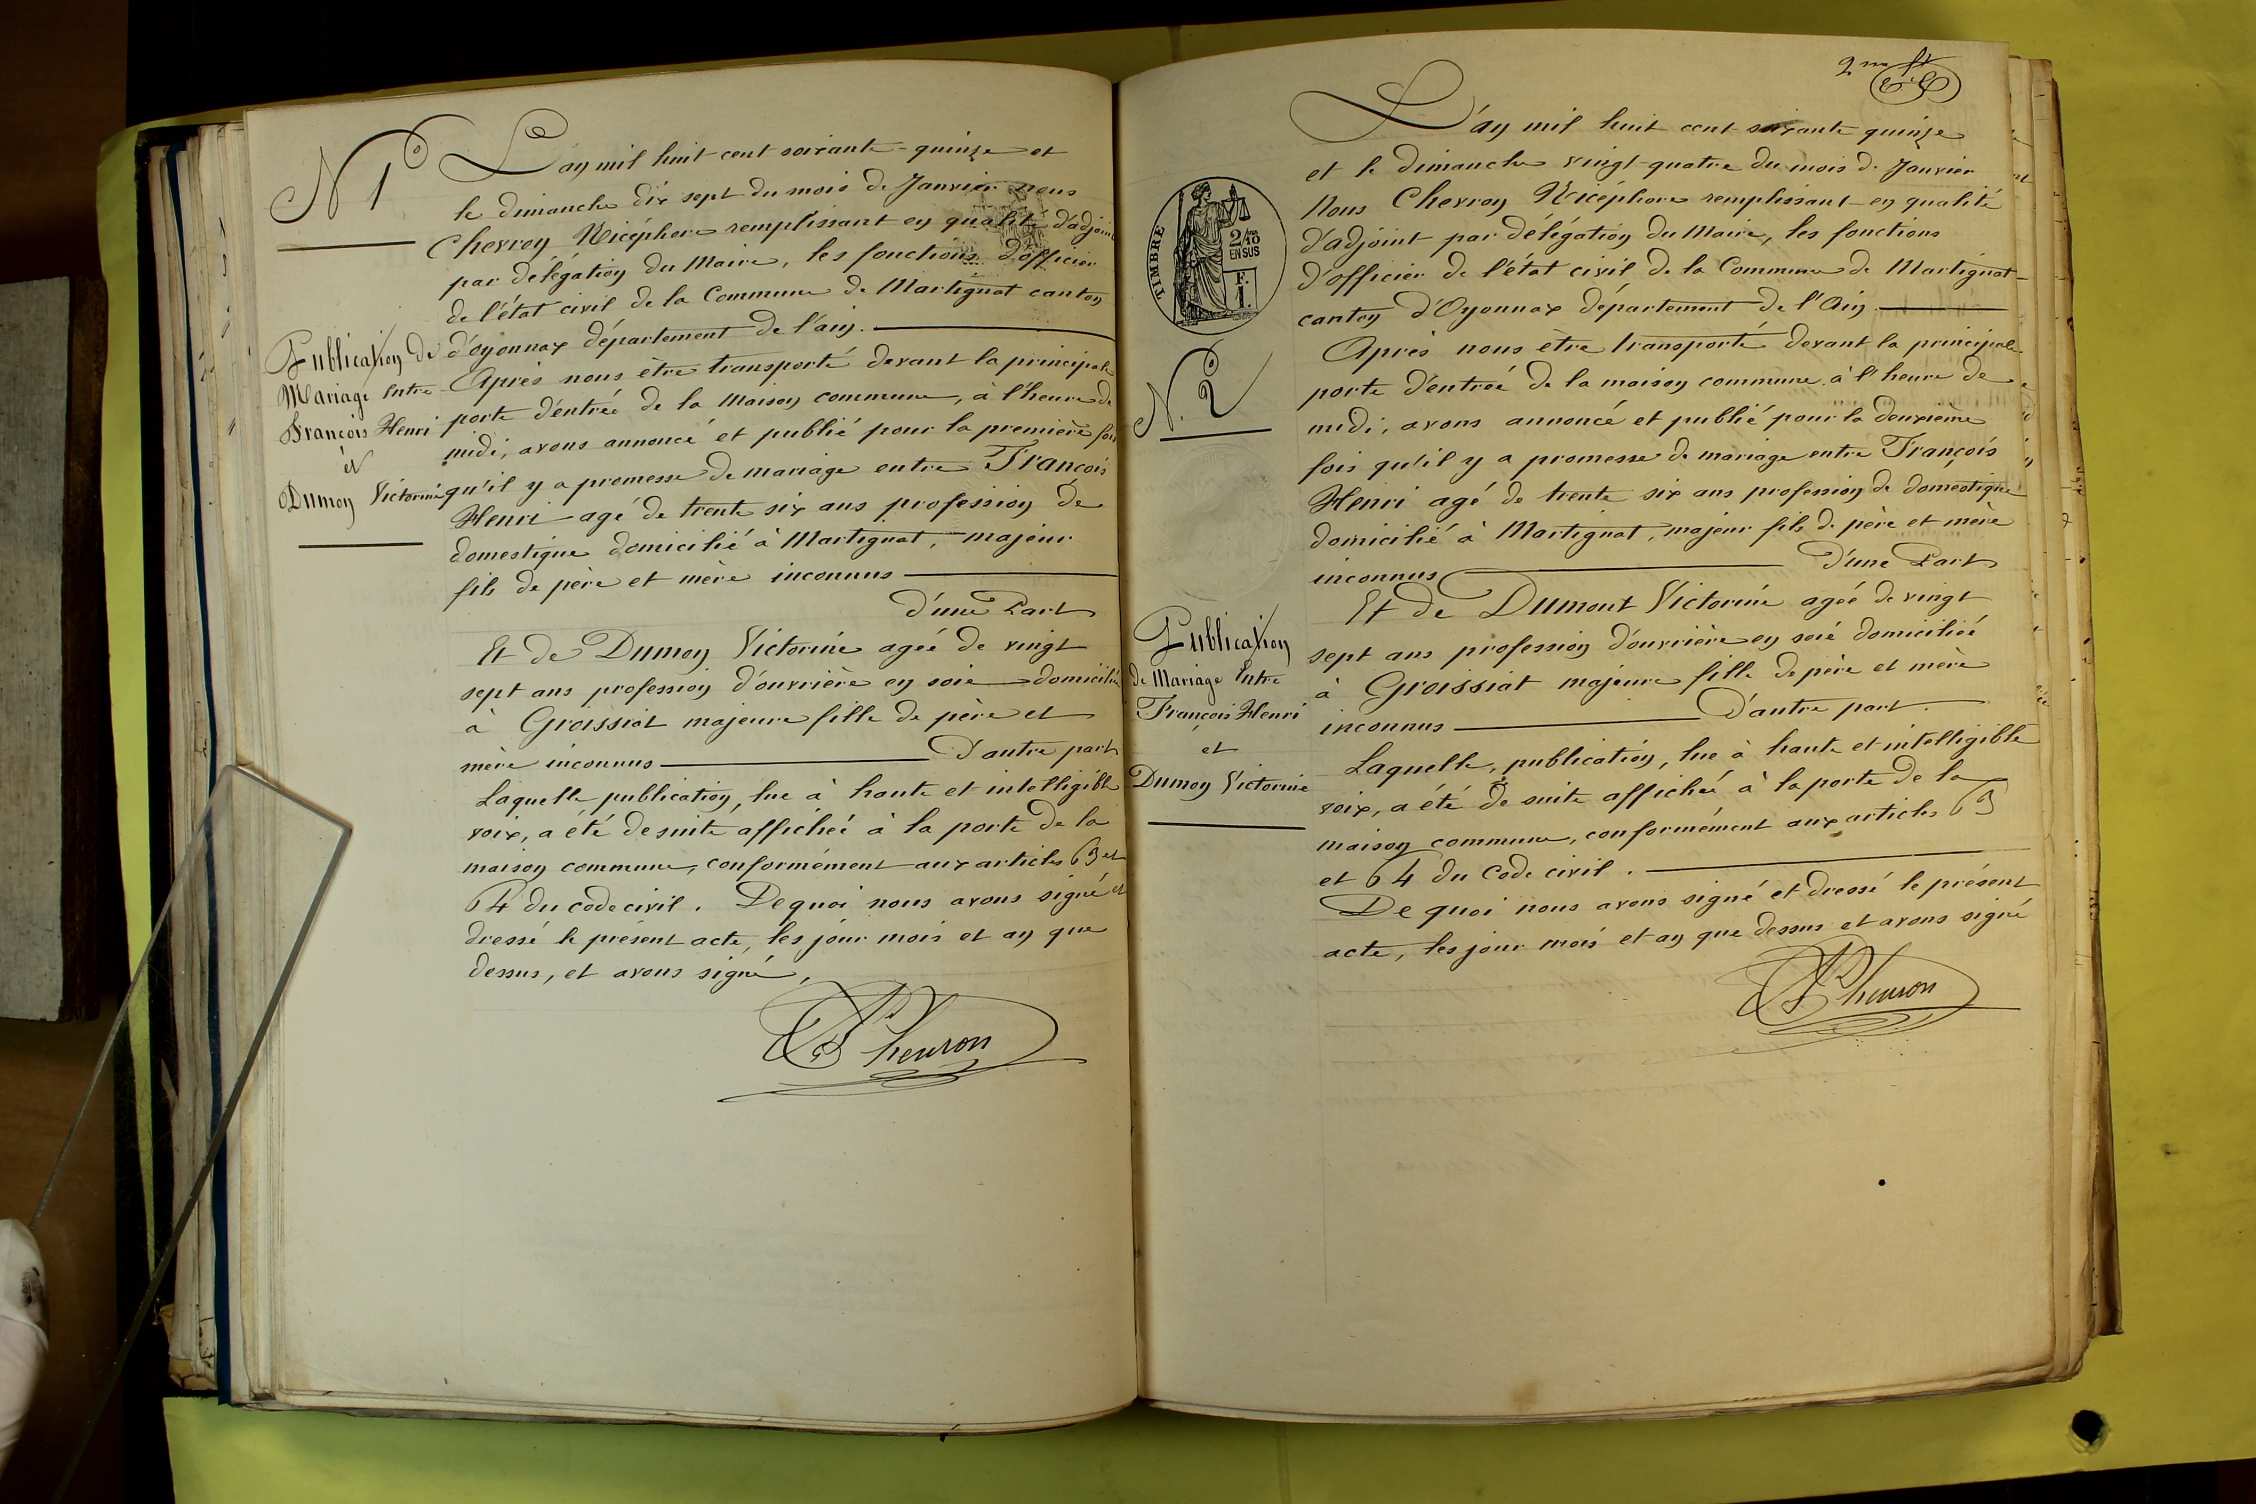 N° 1
L'an mil huit cent soixante-quinze et
le dimanche dix sept du mois de Janvier nous
Chevron Nicéphore remplissant en qualité d'adjoint
par délégation du Maire, les fonctions d'officier
de l'état civil de la Commune de Martignat canton
d'oyonnax département de l'ain.
Publication de
Mariage Entre
François Henri
et
Dumon Victorine
Après nous être transporté devant la principale
porte d'entrée de la Maison commune, à l'heure de
midi, avons annoncé et publié pour la première fois
qu'il y a promesse de mariage entre François
Henri agé de trente six ans profession de
domestique domicilié à Martignat, majeur
fils de père et mère inconnus
d'une Part
Et de Dumon Victorine agée de vingt
sept ans profession d'ouvrière en soie domiciliée
à Groissiat majeure fille de père et
mère inconnus D'autre part
Laquelle publication, lue à haute et intelligible
voix, a été de suite affichée à la porte de la
maison commune, conformément aux articles 63 et
64 du code civil. De quoi nous avons signé et
dressé le présent acte, les jour mois et an que
dessus, et avons signé.
Chevron
2me ft
TIMBRE
2/10
EN SUS
F.
1.
L'an mil huit cent soixante quinze
et le dimanche vingt-quatre du mois de Janvier
Nous Chevron Nicéphore remplissant en qualité
d'adjoint par délégation du Maire, les fonctions
d'officier de l'état civil de la Commune de Martignat
canton d'Oyonnax département de l'Ain
N° 2
Après nous être transporté devant la principale
porte d'entrée de la maison commune à l'heure de
midi, avons annoncé et publié pour la deuxième
fois qu'il y a promesse de mariage entre François
Henri agé de trente six ans profession de domestique
domicilié à Martignat, majeur fils de père et mère
inconnus D'une Part
Publication
de Mariage Entre
François Henri
et
Dumon Victorine
Et de Dumont Victorine agée de vingt
sept ans profession d'ouvrière en soie domiciliée
à Groissiat majeure fille de père et mère
inconnus D'autre part.
Laquelle, publication, lue à haute et intelligible
voix, a été de suite affichée à la porte de la
maison commune, conformément aux articles 63
et 64 du Code civil.
De quoi nous avons signé et dressé le présent
acte, les jour mois et an que dessus et avons signé
Chevron